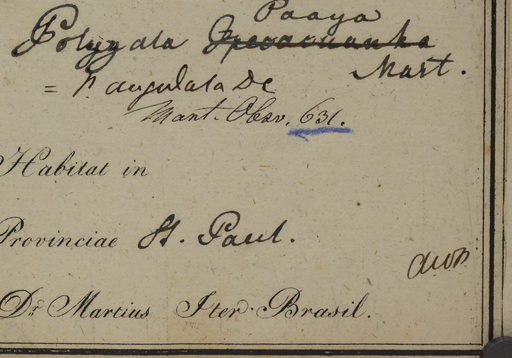 Paaya
Polygala Ipecacuanha
Mart.
= P. angulata DC
Mart. Obsv. 631.
Habitat in
Provinciae St. Paul.
Dr. Martius Iter Brasil.